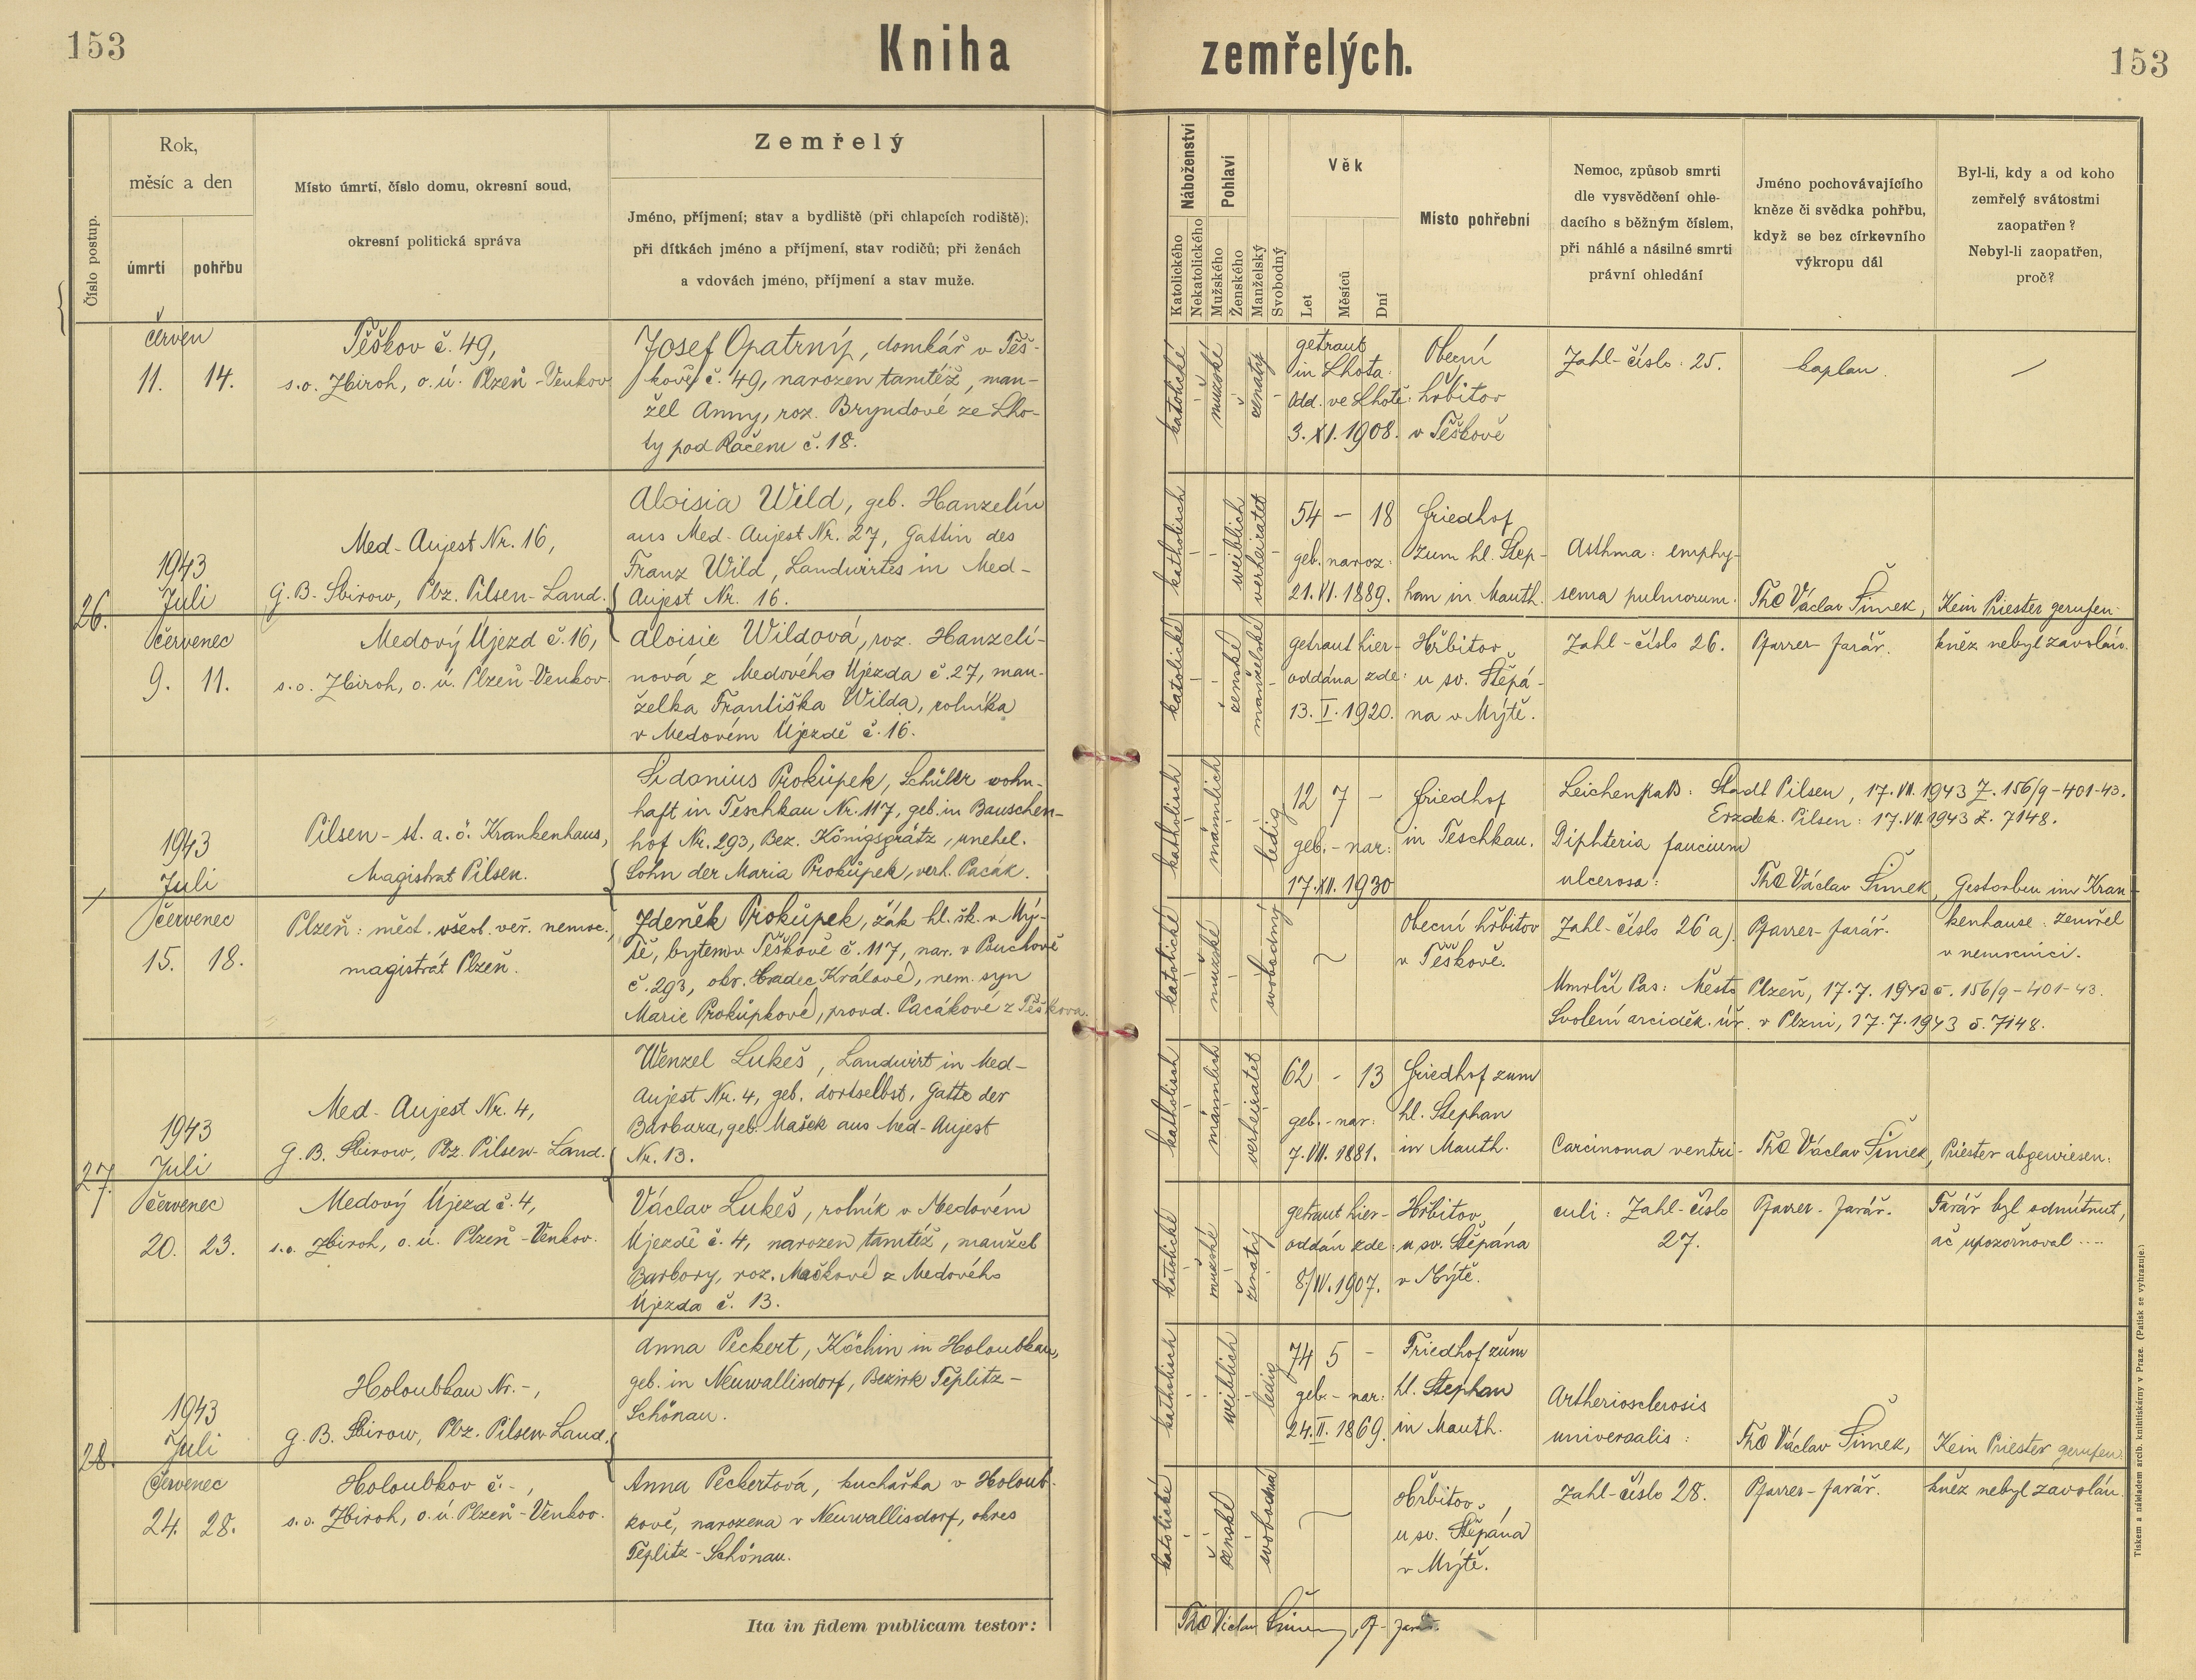 153
Kniha zemřelých.
153
Číslo postup.
Rok,
měsíc a den
úmrtí
pohřbu
Místo úmrtí, číslo domu, okresní soud,
okresní politická správa
Zemřelý
Jméno, příjmení; stav a bydliště (při chlapcích rodiště);
při dítkách jméno a příjmení, stav rodičů; při ženách
a vdovách jméno, příjmení a stav muže.
Náboženství
Katolického
Nekatolického
Pohlaví
Mužského
Ženského
Manželský
Svobodný
Věk
Let
Měsíců
Dní
Místo pohřební
Nemoc, způsob smrti
dle vysvědčení ohle-
dacího s běžným číslem,
při náhlé a násilné smrti
právní ohledání
Jméno pochovávajícího
kněze či svědka pohřbu,
když se bez církevního
výkropu dál
Byl-li, kdy a od koho
zemřelý svátostmi
zaopatřen?
Nebyl-li zaopatřen,
proč?
červen
11. 14.
Těškov č. 49,
s.o. Zbiroh, o.ú. Plzeň-Venkov
Josef Opatrný, domkář v Těš-
kově č. 49, narozen tamtéž, man-
žel Anny, roz. Bryndové ze Lho-
ty pod Račem č. 18.
katolické
mužské
ženatý
getraut
in Lhota:
Odd. ve Lhotě:
3. XI. 1908.
Obecní
hřbitov
v Těškově
Zahl-číslo: 25.
kaplan.
—
26.
1943
Juli
Med-Aujest Nr. 16,
G.B. Sbirow, Pbz. Pilsen-Land.
Aloisia Wild, geb. Hanzelín
aus Med-Aujest Nr. 27, Gattin des
Franz Wild, Landwirtes in Med-
Aujest Nr. 16.
katholisch
weiblich
verheiratet
54 — 18
geb. naroz:
21. VI. 1889.
Friedhof
zum hl. Step-
han in Mauth.
Asthma: emphy-
sema pulmorum.
ThC Václav Šimek,
Kein Priester gerufen.
červenec
9. 11.
Medový Újezd č. 16,
s.o. Zbiroh, o.ú. Plzeň-Venkov.
Aloisie Wildová, roz. Hanzelí-
nová z Medového Újezda č. 27, man-
želka Františka Wilda, rolníka
v Medovém Újezdě č. 16.
katolické
ženské
manželské
getraut hier-
oddána zde:
13. I. 1920.
Hřbitov
u sv. Štěpá-
na v Mýtě.
Zahl-číslo 26.
Pfarrer-farář.
kněz nebyl zavolán.
1943
Juli
Pilsen-st. a. ö. Krankenhaus,
Magistrat Pilsen.
Sidonius Prokůpek, Schüler wohn-
haft in Teschkau Nr. 117, geb. in Bauschen-
hof Nr. 293, Bez. Königsgrätz, unehel.
Sohn der Maria Prokůpek, verh. Pacák.
katholisch
männlich
ledig
12 7 —
geb.- nar:
17. XII. 1930
Friedhof
in Teschkau.
Leichenpaß: Stadt Pilsen, 17. VII. 1943 Z. 156/9-401-43.
Erzdek. Pilsen: 17. VII. 1943 Z. 7148.
Diphteria faucium
ulcerosa:
ThC Václav Šimek,
Gestorben im Kran-
červenec
15. 18.
Plzeň: měst. všeob. veř. nemoc.,
magistrát Plzeň.
Zdeněk Prokůpek, žák hl. šk. v Mý-
tě, bytem v Těškově č. 117, nar. v Puchově
č. 293, okr. Hradec Králové, nem. syn
Marie Prokůpkové, provd. Pacákové z Těškova.
katolické
mužské
svobodný
Obecní hřbitov
v Těškově.
Zahl-číslo 26 a).
Pfarrer-farář.
kenhause: zemřel
v nemocnici.
Umrlčí Pas: Město Plzeň, 17.7. 1943 č. 156/9-401-43.
Svolení arciděk. úř. v Plzni, 17.7. 1943 č. 7148.
27.
1943
Juli
Med-Aujest Nr. 4,
G.B. Sbirow, Pbz. Pilsen-Land.
Wenzel Lukeš, Landwirt in Med-
Aujest Nr. 4, geb. dortselbst, Gatte der
Barbara, geb. Mašek aus Med-Aujest
Nr. 13.
katholisch
männlich
verheiratet
62 - 13
geb.- nar:
7. VII. 1881.
Friedhof zum
hl. Stephan
in Mauth.
Carcinoma ventri-
ThC Václav Šimek,
Priester abgewiesen:
červenec
20. 23.
Medový Újezd č. 4,
s.o. Zbiroh, o.ú. Plzeň-Venkov.
Václav Lukeš, rolník v Medovém
Újezdě č. 4, narozen tamtéž, manžel
Barbory, roz. Maškové z Medového
Újezda č. 13.
katolické
mužské
ženatý
getraut hier-
oddán zde:
8/IV. 1907.
Hřbitov
u sv. Štěpána
v Mýtě.
culi: Zahl-číslo
27.
Pfarrer-farář.
Farář byl odmítnut,
ač upozorňoval ....
28.
1943
Juli
Holoubkau Nr.-,
G.B. Sbirow, Pbz. Pilsen-Land.
Anna Peckert, Köchin in Holoubkau,
geb. in Neuwallisdorf, Bezirk Teplitz-
Schönau.
katholisch
weiblich
ledig
74 5 -
geb.- nar:
24. II. 1869.
Friedhof zum
hl. Stephan
in Mauth.
Artheriosclerosis
universalis:
ThC Václav Šimek,
Kein Priester gerufen
červenec
24. 28.
Holoubkov č.-,
s.o. Zbiroh, o.ú. Plzeň-Venkov.
Anna Peckertová, kuchařka v Holoub-
kově, narozena v Neuwallisdorf, okres
Teplitz-Schönau.
katolické
ženské
svobodná
Hřbitov
u sv. Štěpána
v Mýtě.
Zahl-číslo 28.
Pfarrer-farář.
kněz nebyl zavolán.
Ita in fidem publicam testor:
ThC Václav Šimek, Pf- farář.
Tiskem a nákladem arcib. knihtiskárny v Praze. (Patisk se vyhrazuje.)